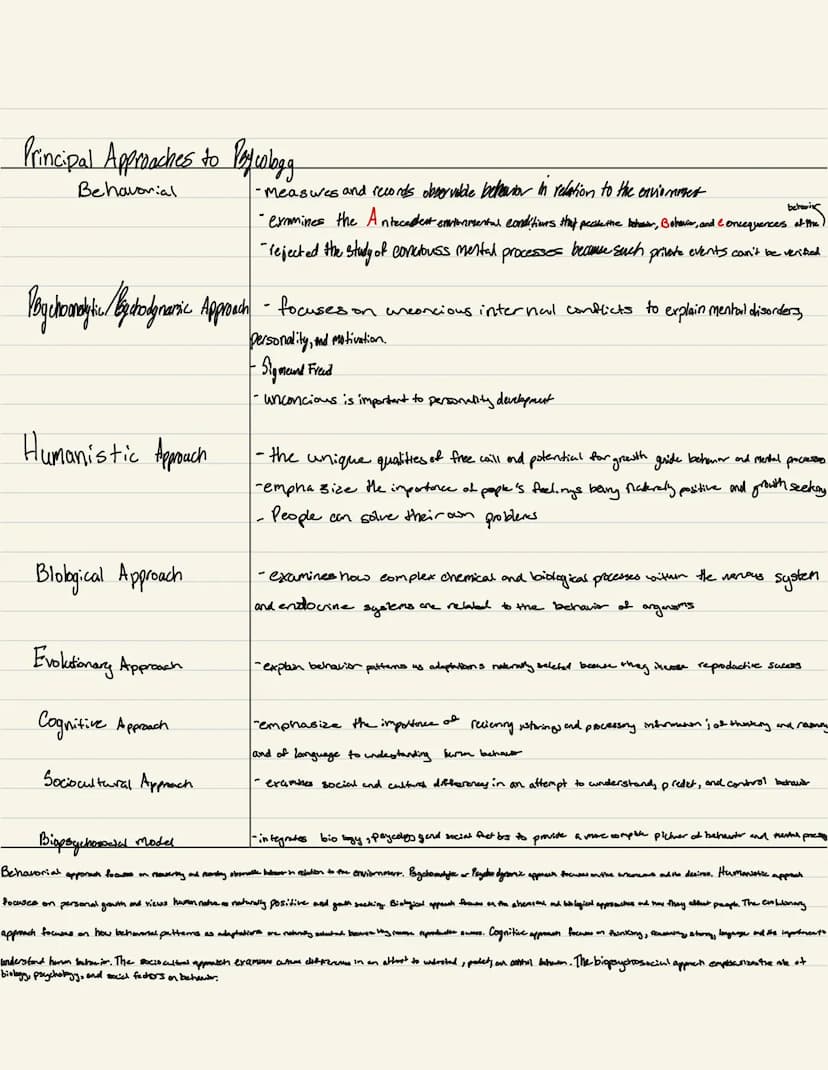 Principal Approaches to Psycology
Behavorial
- measures and records observable behavior in relation to the enviornment
- examines the Antecedent environmental conditions that precede the behavior, Behavior, and Concequences of the behavior
- rejected the study of concious mental processes because such private events can't be verified
Psychoanalytic/Psychodynamic Approach
- focuses on unconcious internal conflicts to explain mental disorders,
personality, and motivation.
- Sigmund Freud
- unconcious is important to personality development
Humanistic Approach
- the unique qualities of free will and potential for growth guide behavior and mental processes
- emphasize the importance of people's feelings being naturally positive and growth seeking
- People can solve their own problems
Biological Approach
- examines how complex chemical and biological processes within the nervous system
and endocrine systems are related to the behavior of organisms
Evolutionary Approach
- explain behavior patterns as adaptations naturally selected because they increase reproductive success
Cognitive Approach
- emphasize the importance of recieving, storing, and processing information; of thinking and reasoning
and of language to understanding human behavior
Sociocultural Approach
- examines social and cultural differences in an attempt to understand, predict, and control behavior
Biopsychosocial Model
- integrates biology, psycology and social factors to provide a more complete picture of behavior and mental process
Behavorial approach focuses on measuring and recording observable behavior in relation to the enviornment. Psychoanalytic or Psychodynamic approach focuses on the unconcious and the desires. Humanistic approach
focuses on personal growth and views human nature as naturally positive and growth seeking. Biological approach focuses on the chemical and biological approaches and how they affect people. The evolutionary
approach focuses on how behavioral patterns as adaptations are naturally selected because they increase reproductive success. Cognitive approach focuses on thinking, reasoning, storing, language and its importance to
understand human behavior. The sociocultural approach examines culture differences in an attempt to understand, predict, or control behavior. The biopsychosocial approach emphasizes the role of
biology, psychology, and social factors on behavior.